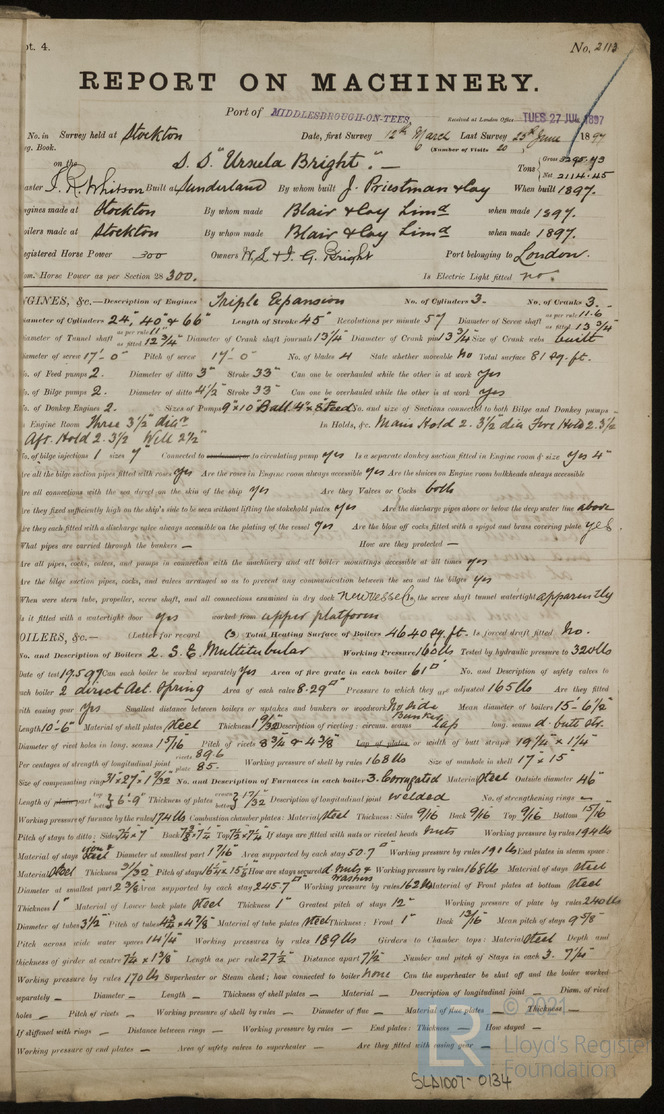 pt. 4.
No. 2113
REPORT ON MACHINERY.
Port of MIDDLESBROUGH-ON-TEES, Received at London Office TUES 27 JUL 1897
No. in Survey held at Stockton Date, first Survey 12th March Last Survey 25th June 1897
g. Book. (Number of Visits 20
on the S.S "Ursula Bright". Tons Gross Net 2114.45
Built at Sunderland By whom built J. Priestman & Coy When built 1897.
ngines made at Stockton By whom made Blair & Coy Limd when made 1897.
oilers made at Stockton By whom made Blair & Coy Limd when made 1897.
egistered Horse Power 300 Owners Bright Port belonging to London.
om. Horse Power as per Section 28 300. Is Electric Light fitted no.
NGINES, &c.—Description of Engines Triple Expansion No. of Cylinders 3. No. of Cranks 3.
iameter of Cylinders 24", 40" & 66" Length of Stroke 45" Revolutions per minute 57 Diameter of Screw shaft as per rule 11.6 as fitted 13 3/4"
iameter of Tunnel shaft as per rule 11" as fitted 12 3/4" Diameter of Crank shaft journals 13 3/4 Diameter of Crank pin 13 3/4 Size of Crank webs built
iameter of screw 17'-0" Pitch of screw 17'-0" No. of blades 4 State whether moveable No Total surface 81 sq. ft.
o. of Feed pumps 2. Diameter of ditto 3" Stroke 33" Can one be overhauled while the other is at work yes
o. of Bilge pumps 2. Diameter of ditto 4 1/2" Stroke 33" Can one be overhauled while the other is at work yes
o. of Donkey Engines 2. Sizes of Pumps 9" x 10" Ball 4" x 8" Feed No. and size of Suctions connected to both Bilge and Donkey pumps
n Engine Room Three 3 1/2" dia In Holds, &c. Main Hold 2. 3 1/2" dia Fore Hold 2. 3 1/2
Aft. Hold 2. 3 1/2 Well 2 1/2"
o. of bilge injections 1 sizes 7" Connected to circulating pump yes Is a separate donkey suction fitted in Engine room & size yes 4"
re all the bilge suction pipes fitted with roses yes Are the roses in Engine room always accessible yes Are the sluices on Engine room bulkheads always accessible
re all connections with the sea direct on the skin of the ship yes Are they Valves or Cocks both
re they fixed sufficiently high on the ship's side to be seen without lifting the stokehold plates yes Are the discharge pipes above or below the deep water line above
re they each fitted with a discharge valve always accessible on the plating of the vessel yes Are the blow off cocks fitted with a spigot and brass covering plate yes.
What pipes are carried through the bunkers — How are they protected —
Are all pipes, cocks, valves, and pumps in connection with the machinery and all boiler mountings accessible at all times yes
Are the bilge suction pipes, cocks, and valves arranged so as to prevent any communication between the sea and the bilges yes
When were stern tube, propeller, screw shaft, and all connections examined in dry dock new vessel Is the screw shaft tunnel watertight apparently
Is it fitted with a watertight door yes worked from upper platform
OILERS, &c.— (Letter for record (S) Total Heating Surface of Boilers 4640 sq. ft. Is forced draft fitted No.
No. and Description of Boilers 2. S. E. Multitubular Working Pressure 160 lbs Tested by hydraulic pressure to 320 lbs
Date of test 19.5.97 Can each boiler be worked separately yes Area of fire grate in each boiler 61 □' No. and Description of safety valves to
each boiler 2 direct Act. Spring Area of each valve 8.29 □" Pressure to which they are adjusted 165 lbs Are they fitted
with easing gear yes Smallest distance between boilers or uptakes and bunkers or woodwork No side Bunker Mean diameter of boilers 15-6 1/8"
Length 10'-6" Material of shell plates steel Thickness Description of riveting: circum. seams lap long. seams d. butt str.
Diameter of rivet holes in long. seams 1 5/16 Pitch of rivets 8 3/4 & 4 3/8 Lap of plates or width of butt straps 19 1/4" x 1 1/4"
Per centages of strength of longitudinal joint rivets 89.6 plate 85. Working pressure of shell by rules 168 lbs Size of manhole in shell 17" x 15
Size of compensating ring No. and Description of Furnaces in each boiler 3. Corrugated Material Steel Outside diameter 46"
Length of plain part top bottom 6'-9" Thickness of plates crown bottom 17/32 Description of longitudinal joint welded No. of strengthening rings —
Working pressure of furnace by the rules 174 lbs Combustion chamber plates: Material Steel Thickness: Sides 9/16 Back 9/16 Top 9/16 Bottom 15/16
Pitch of stays to ditto: Sides 7 1/4 x 7" Back Top If stays are fitted with nuts or riveted heads nuts Working pressure by rules 194 lbs
Material of stays iron & steel Diameter at smallest part 1 7/16" Area supported by each stay 50.7 □" Working pressure by rules 191 lbs End plates in steam space:
Material Steel Thickness 31/32 Pitch of stays How are stays secured d nuts & washers Working pressure by rules 168 lbs Material of stays Steel
Diameter at smallest part 2 3/8 Area supported by each stay 245.7 □" Working pressure by rules 162 lbs Material of Front plates at bottom Steel
Thickness 1" Material of Lower back plate Steel Thickness 1" Greatest pitch of stays 12" Working pressure of plate by rules 240 lbs
Diameter of tubes 3 1/2" Pitch of tubes Material of tube plates Steel Thickness: Front 1" Back 13/16 Mean pitch of stays 9 5/8"
Pitch across wide water spaces 14 1/4" Working pressures by rules 189 lbs Girders to Chamber tops: Material Steel Depth and
thickness of girder at centre 7 1/4 x 1 3/8 Length as per rule 27 1/2" Distance apart 7 1/2" Number and pitch of Stays in each 3. 7 1/4"
Working pressure by rules 170 lbs Superheater or Steam chest; how connected to boiler none Can the superheater be shut off and the boiler worked
separately — Diameter — Length — Thickness of shell plates — Material — Description of longitudinal joint — Diam. of rivet
holes — Pitch of rivets — Working pressure of shell by rules — Diameter of flue — Material of flue plates — Thickness —
If stiffened with rings — Distance between rings — Working pressure by rules — End plates: Thickness — How stayed —
Working pressure of end plates — Area of safety valves to superheater — Are they fitted with easing gear —
© 2021
Lloyd's Register
Foundation
SLD1007-0134